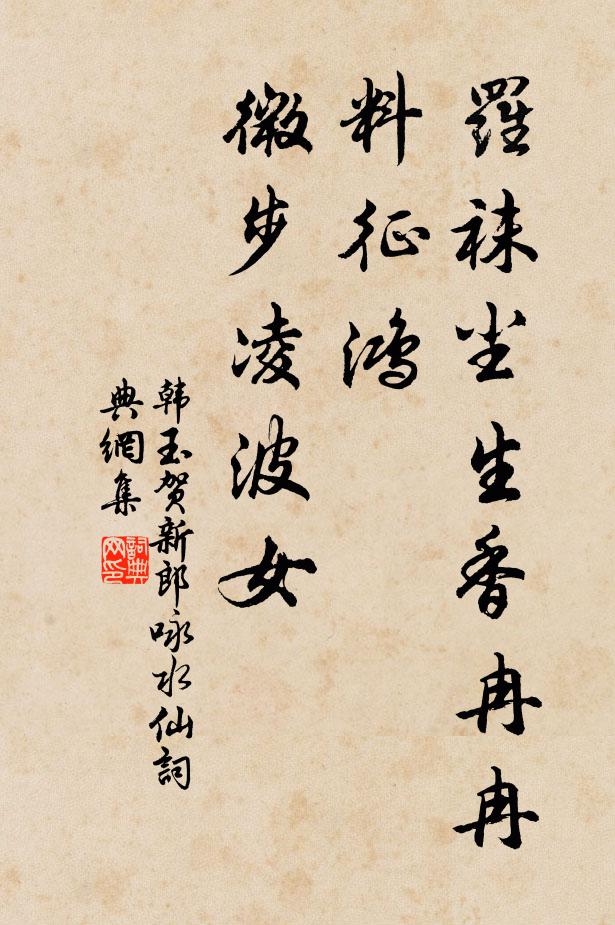 羅袜尘生香冉冉
料征鸿
微步凌波女
韩玉贺新郎咏水仙詞
典網集
詞典
网印